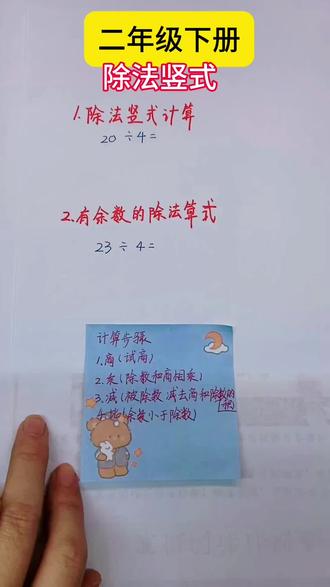 二年级下册
除法竖式
1.除法竖式计算
20÷4=
2.有余数的除法算式
23÷4=
计算步骤
1.商(试商)
2.乘(除数和商相乘)
3.减(被除数减去商和除数的积)
(余数小于除数)